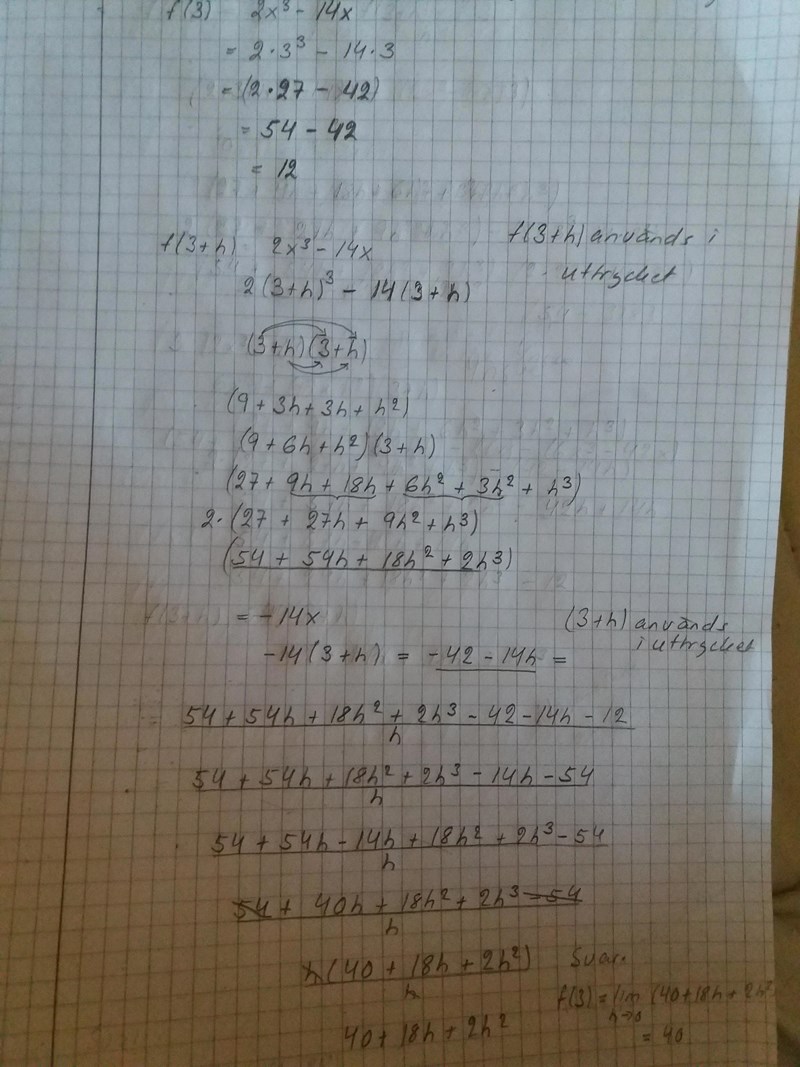 f(3) 2x³ - 14x
= 2·3³ - 14·3
= (2·27 - 42)
= 54 - 42
= 12
f(3+h) 2x³ - 14x
f(3+h) används i
uttrycket
2(3+h)³ - 14(3+h)
(3+h)(3+h)
(9 + 3h + 3h + h²)
(9 + 6h + h²)(3+h)
(27 + 9h + 18h + 6h² + 3h² + h³)
2·(27 + 27h + 9h² + h³)
(54 + 54h + 18h² + 2h³)
= -14x
(3+h) används
i uttrycket
-14(3+h) = -42 - 14h =
54 + 54h + 18h² + 2h³ - 42 - 14h - 12
h
54 + 54h + 18h² + 2h³ - 14h - 54
h
54 + 54h - 14h + 18h² + 2h³ - 54
h
54 + 40h + 18h² + 2h³ - 54
h
h(40 + 18h + 2h²)
h
Svar.
40 + 18h + 2h²
f(3) = lim (40+18h+2h²
h→0
= 40